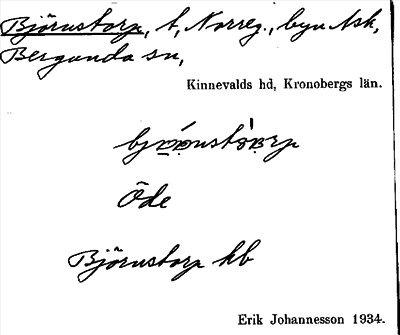 Björnstorp, t, Norreg., byn Ask,
Bergunda sn,
Kinnevalds hd, Kronobergs län.
Öde
Björnstorp hb
Erik Johannesson 1934.